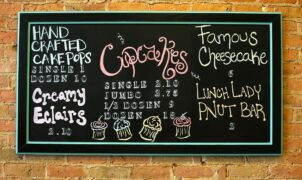 HAND
CRAFTED
CAKE POPS
SINGLE 1
DOZEN 10
Creamy
Eclairs
2.10
Cupcakes
SINGLE 2.10
JUMBO 2.75
1/2 DOZEN 9
DOZEN 18
Famous
Cheesecake
LUNCH LADY
PNUT BAR
2